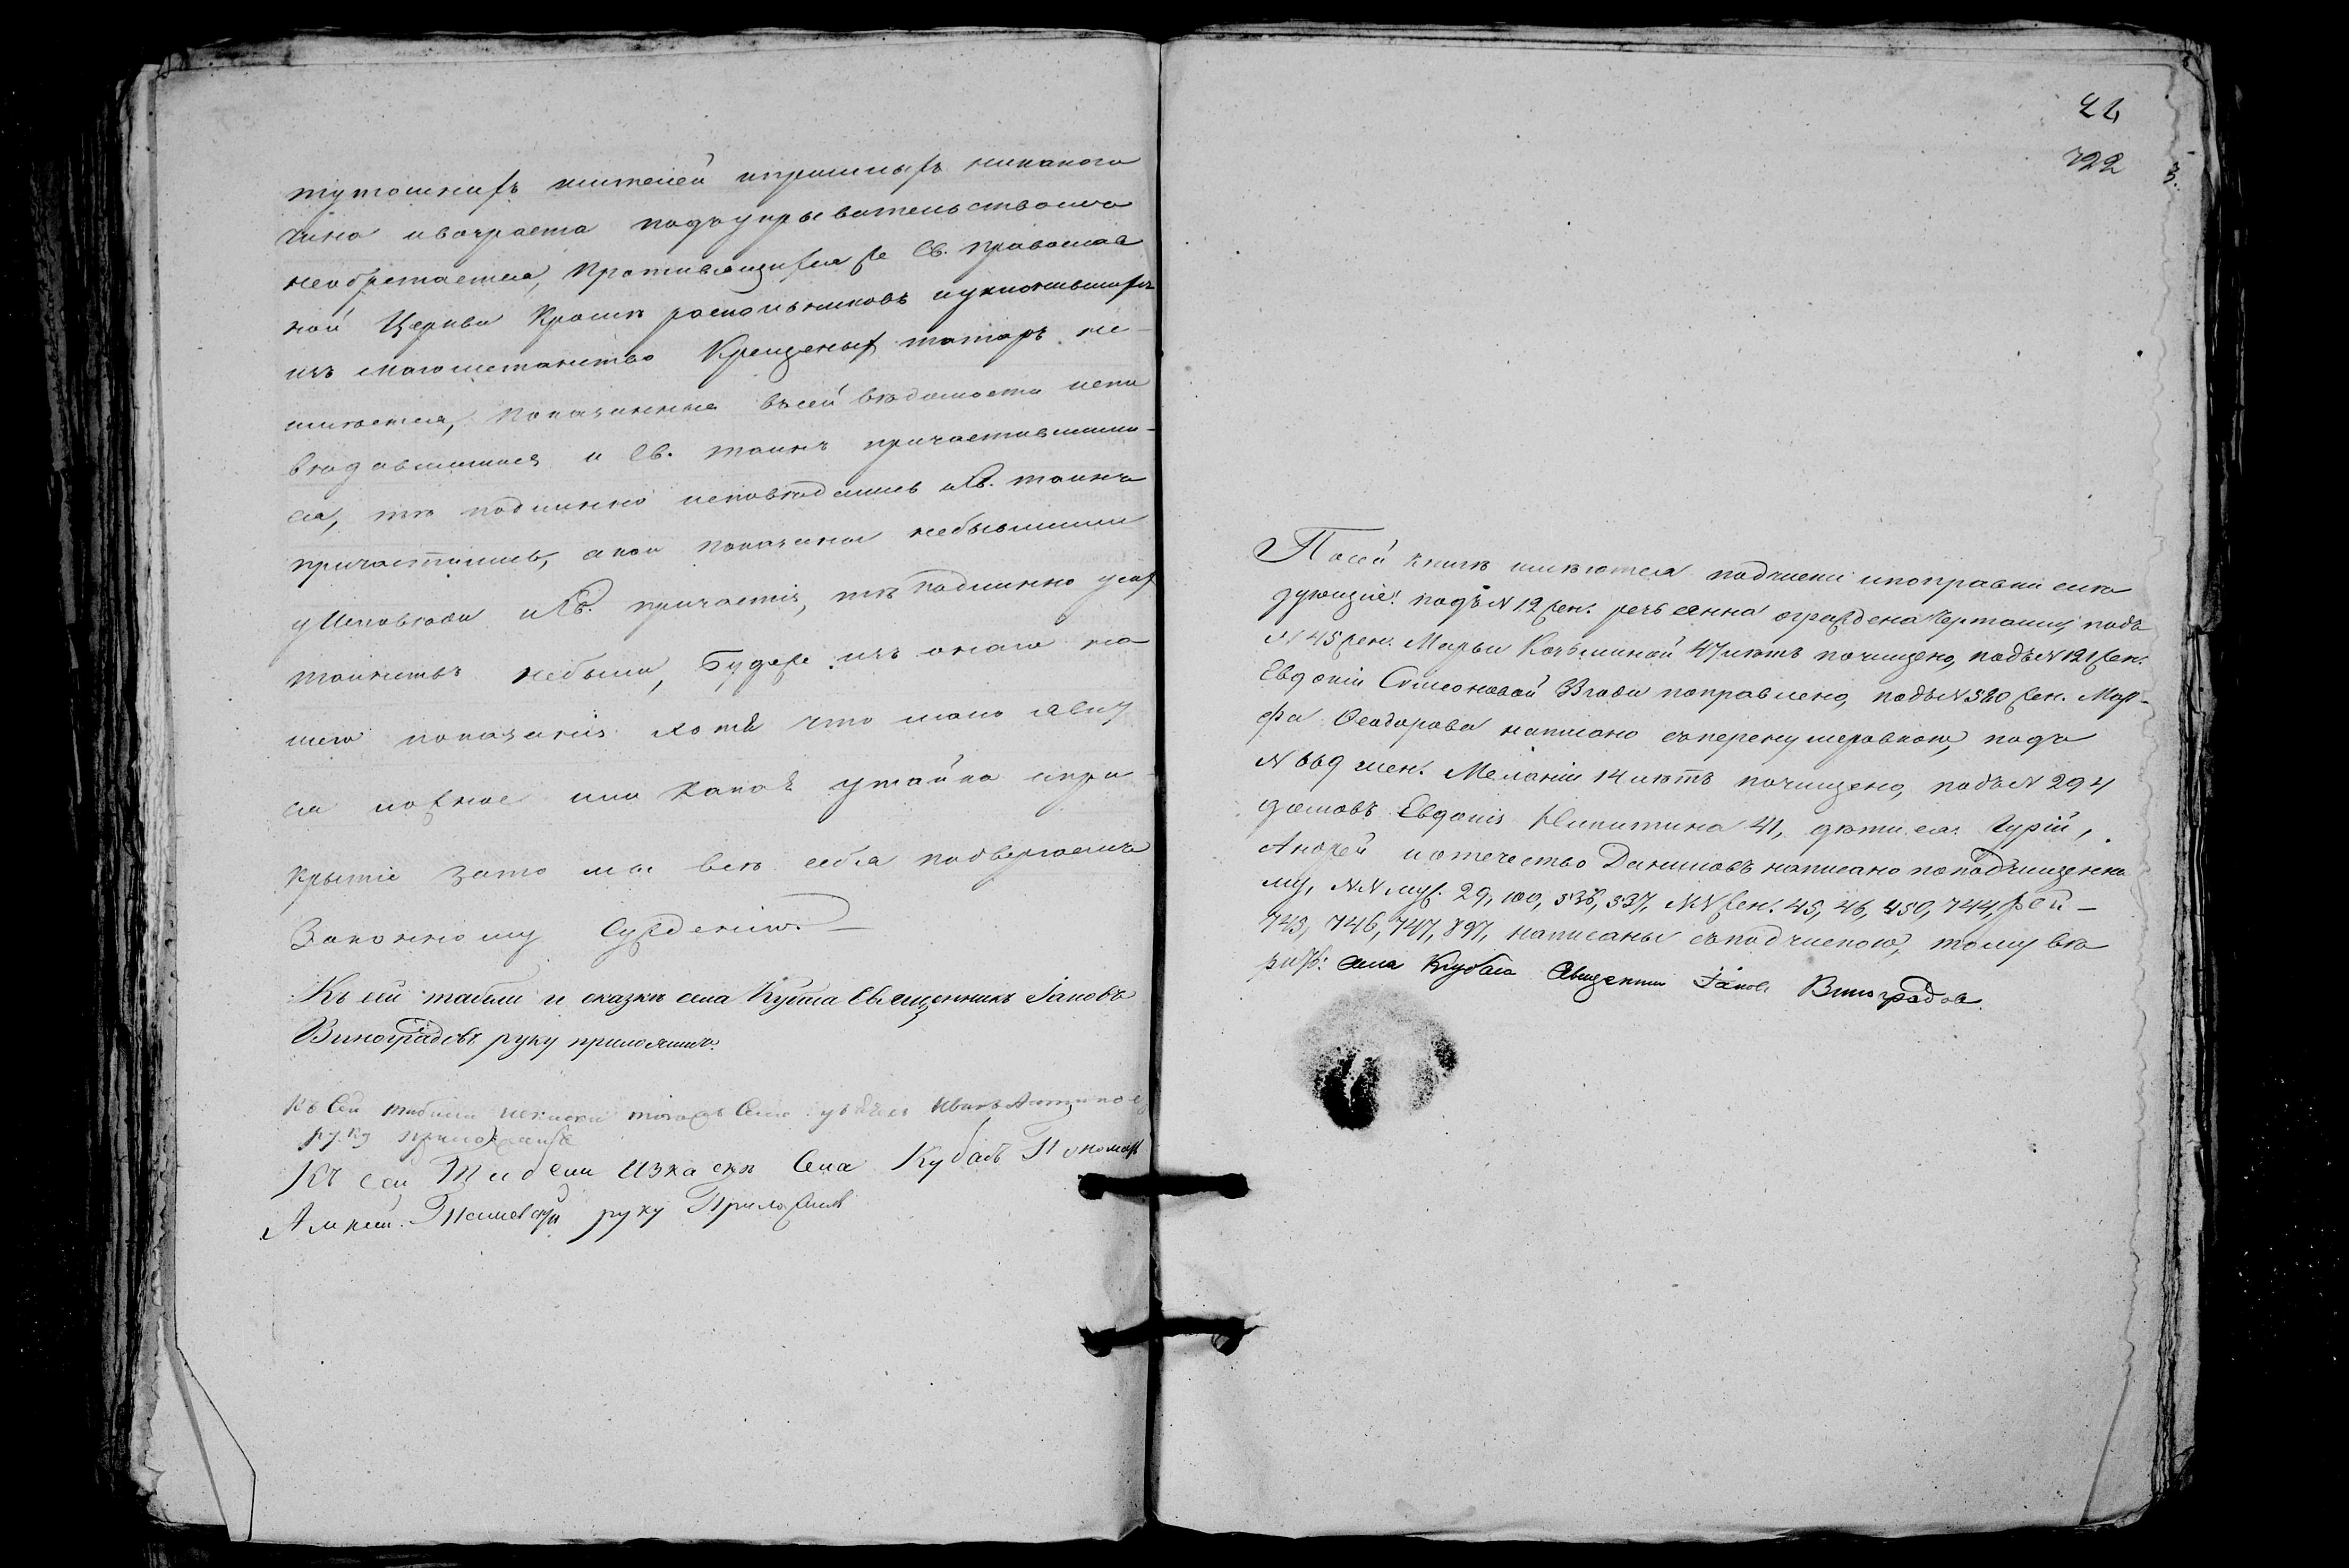 тутошнихъ жителей ипришлыхъ никакого
чина ивозраста подъукрывательствомъ
необретается, Противящихся же Св. православ
ной Церкви Кромѣ раскольниковъ иуклонившихся
въ магометанство Крещеныхъ татаръ не
имѣется, Показанные въсей вѣдомости испо
вѣдавшимися и Св. таинъ причастившими-
ся, тѣ подлинно исповѣдались иСв. таинъ
причастились, акои показаны небывшими
уИсповѣди иСв. причастія, тѣ подлинно усихъ
таинствъ небыли, Будеже изъ онаго на
шего показанія хотя что мало явит
ся ложное или какая утайка ипри-
крытіе зато мы всѣ себя подвергаемъ
Законному Сужденію.
Къ сей табели и сказкѣ села Кубаса Священникъ Іаковъ
Виноградовъ руку приложилъ.
Къ Сей табели искаски тогожъ Села Иванъ
руку приложилъ
Къ сей Табели Изкаскѣ Села Кубасъ Пономарь
руку Приложилъ
722
3.
Посей книгѣ имѣются подчистки ипоправки слѣ
дующіе: подъ N 12 жен. подъ
N 145 жен. Марьи Козьминой 47 лѣтъ почищено, подъ N 121 жен.
Евдокіи Симеоновой Вгоды поправлено, подъ N 380 жен. Мар-
фа Феодорова написано съперенумеровкою, подъ
N 669 жен. Меланіи 14 лѣтъ почищено, подъ N 294
домовъ Евдокія Никитина 41, дѣти ея: Гурій,
Андрей иотечество Даниловъ написано поподчищенно
му, NN муж. 29, 100, 336, 337, NN жен. 45, 46, 450, 744,
743, 746, 747, 897, написаны съподчисткою, тому вѣ
рить: села Кубаса Священникъ Іаковъ Виноградовъ.